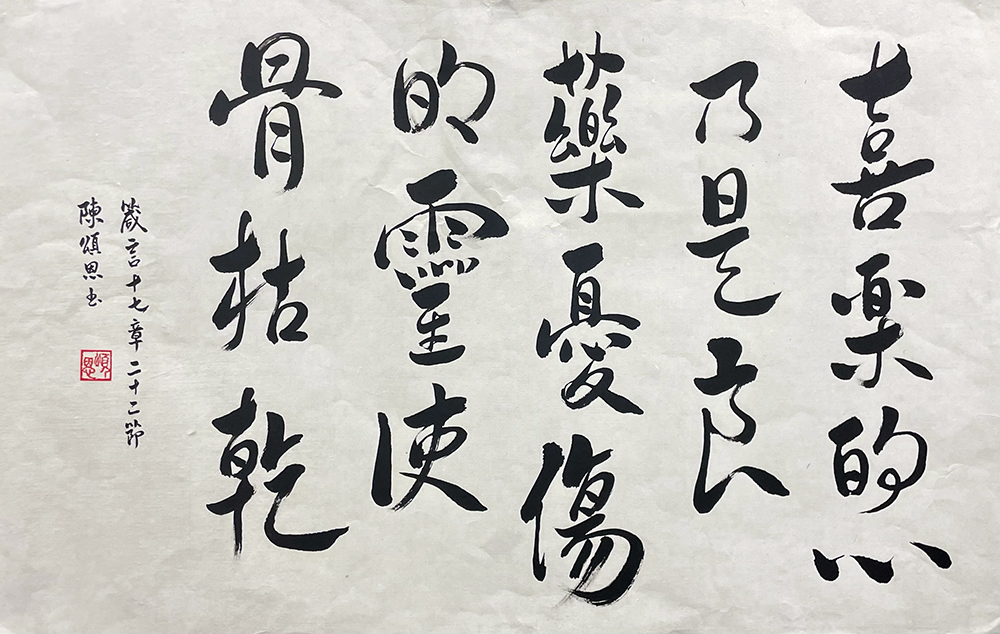 喜樂的心
乃是良
藥憂傷
的靈使
骨枯乾
箴言十七章二十二節
陳頌思书
頌思